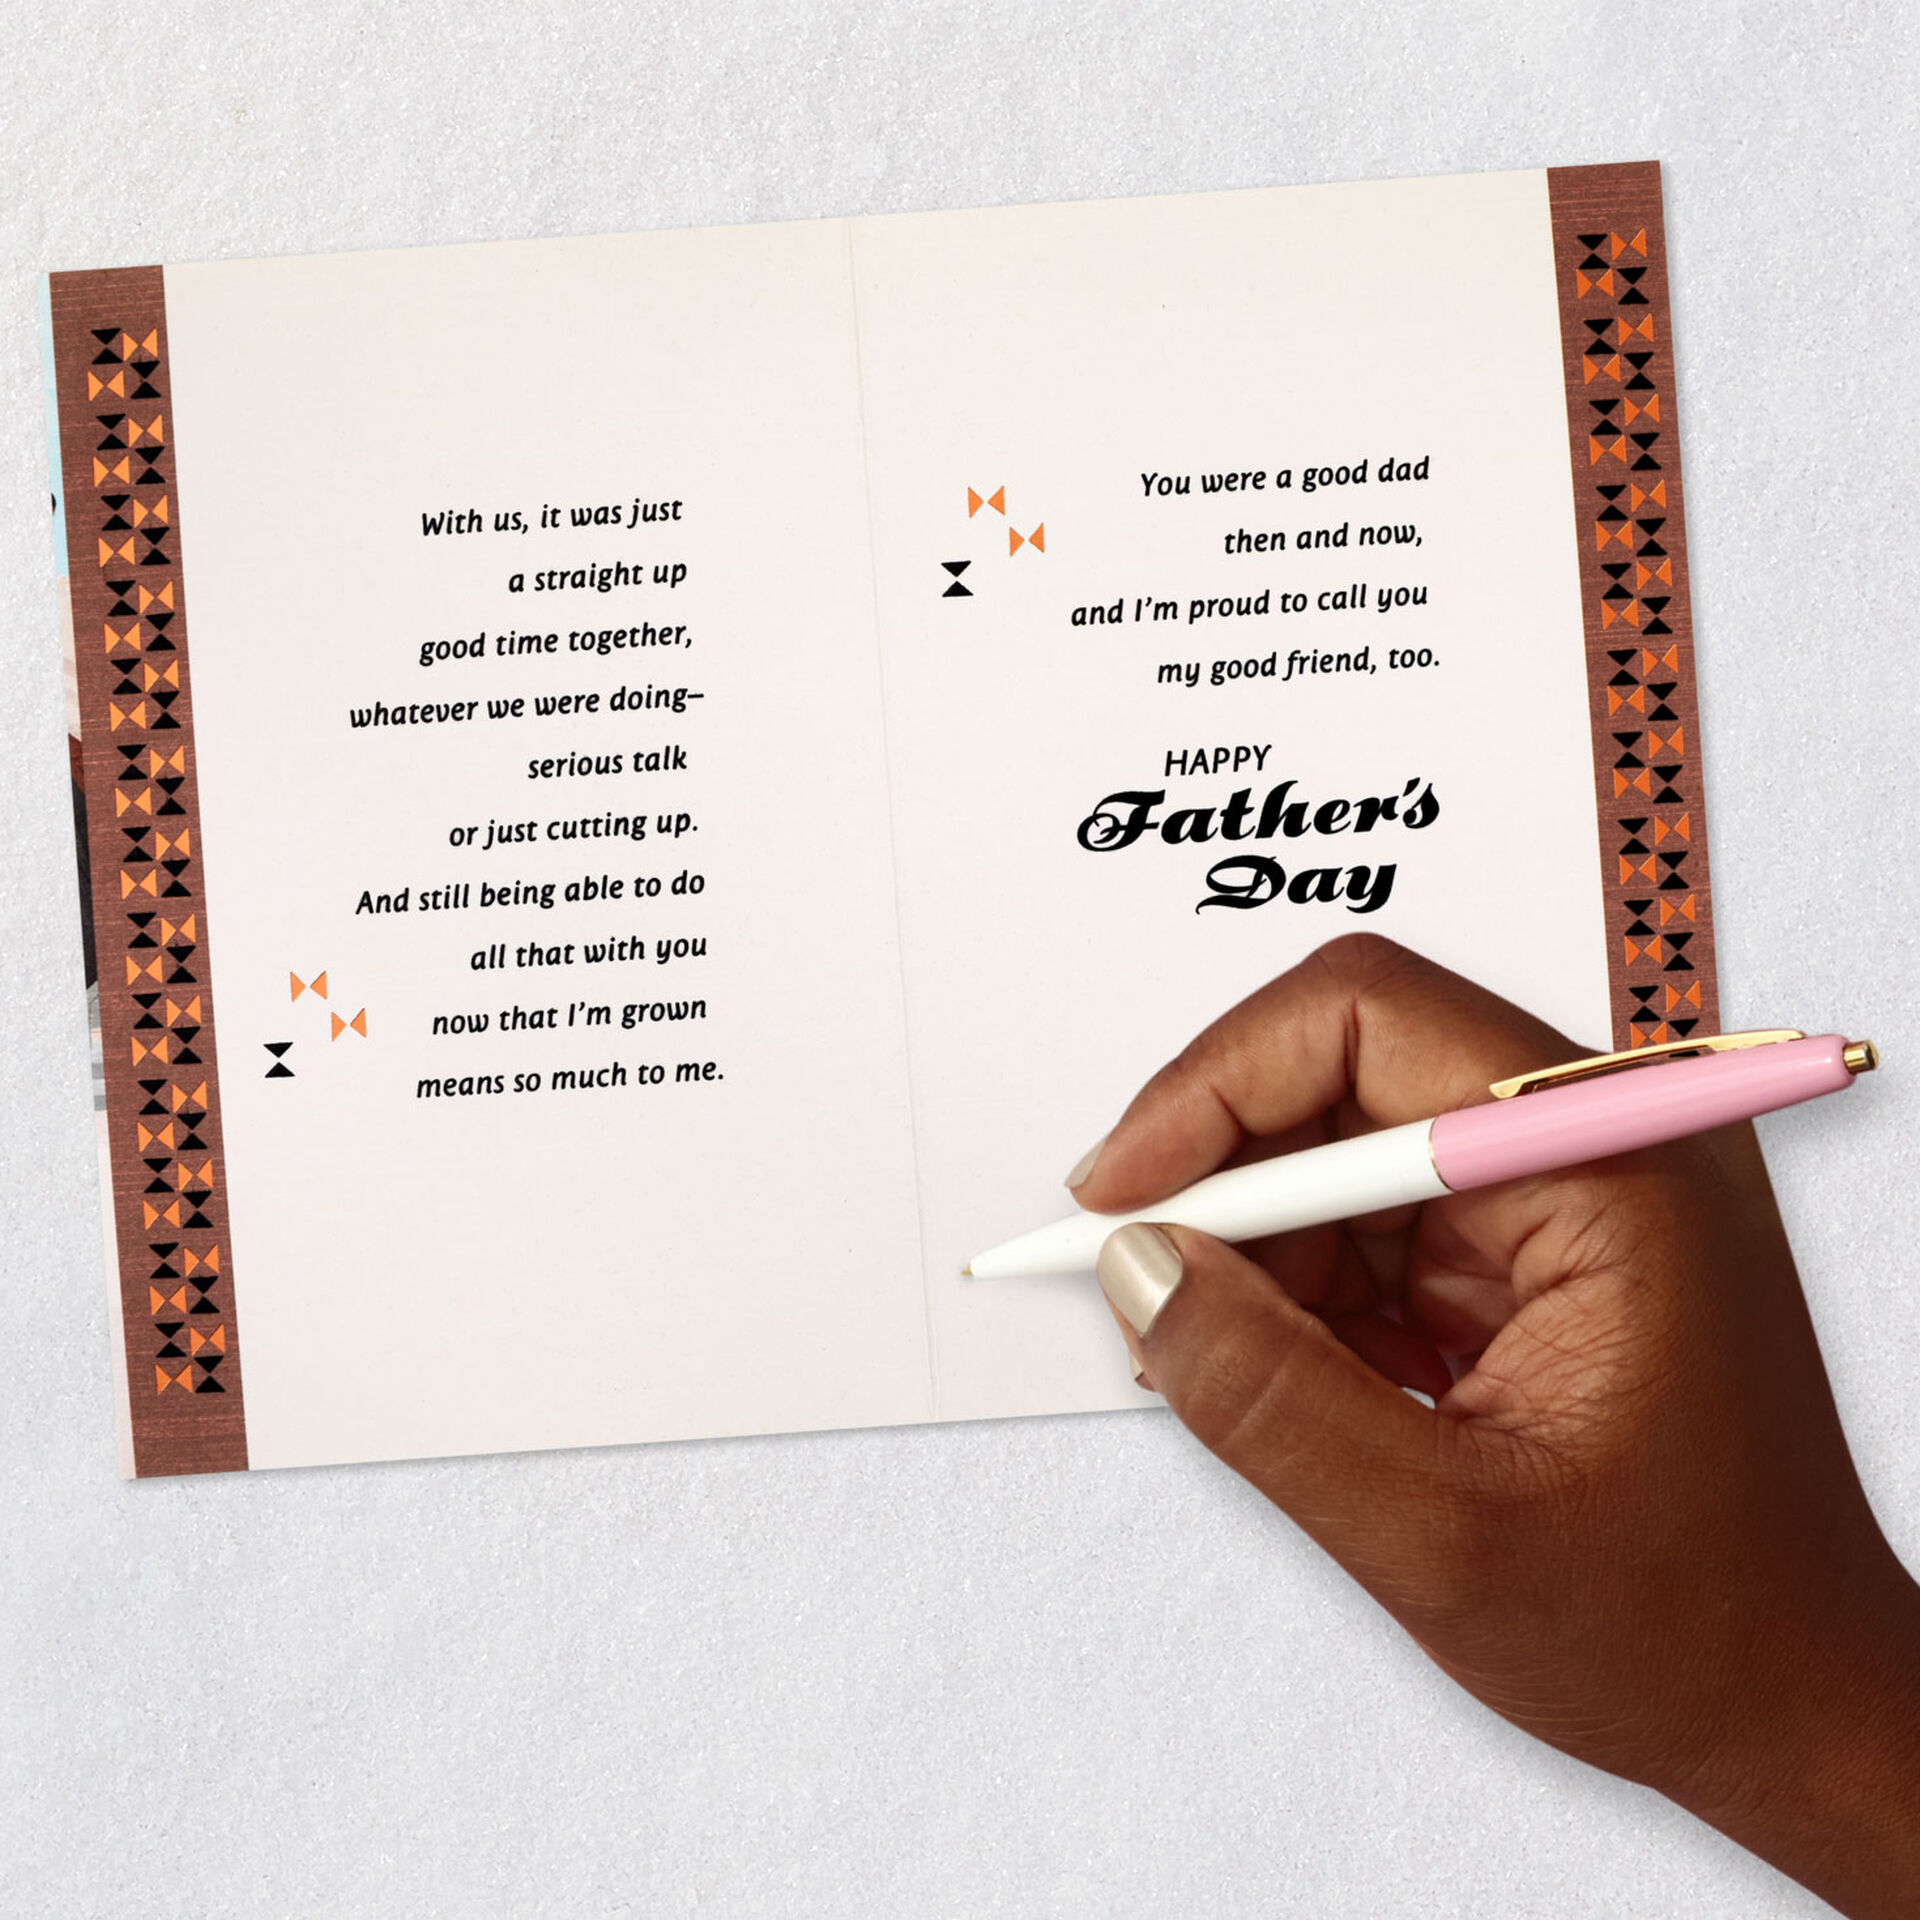 With us, it was just
a straight up
good time together,
whatever we were doing–
serious talk
or just cutting up.
And still being able to do
all that with you
now that I’m grown
means so much to me.
You were a good dad
then and now,
and I’m proud to call you
my good friend, too.
HAPPY
Father’s
Day